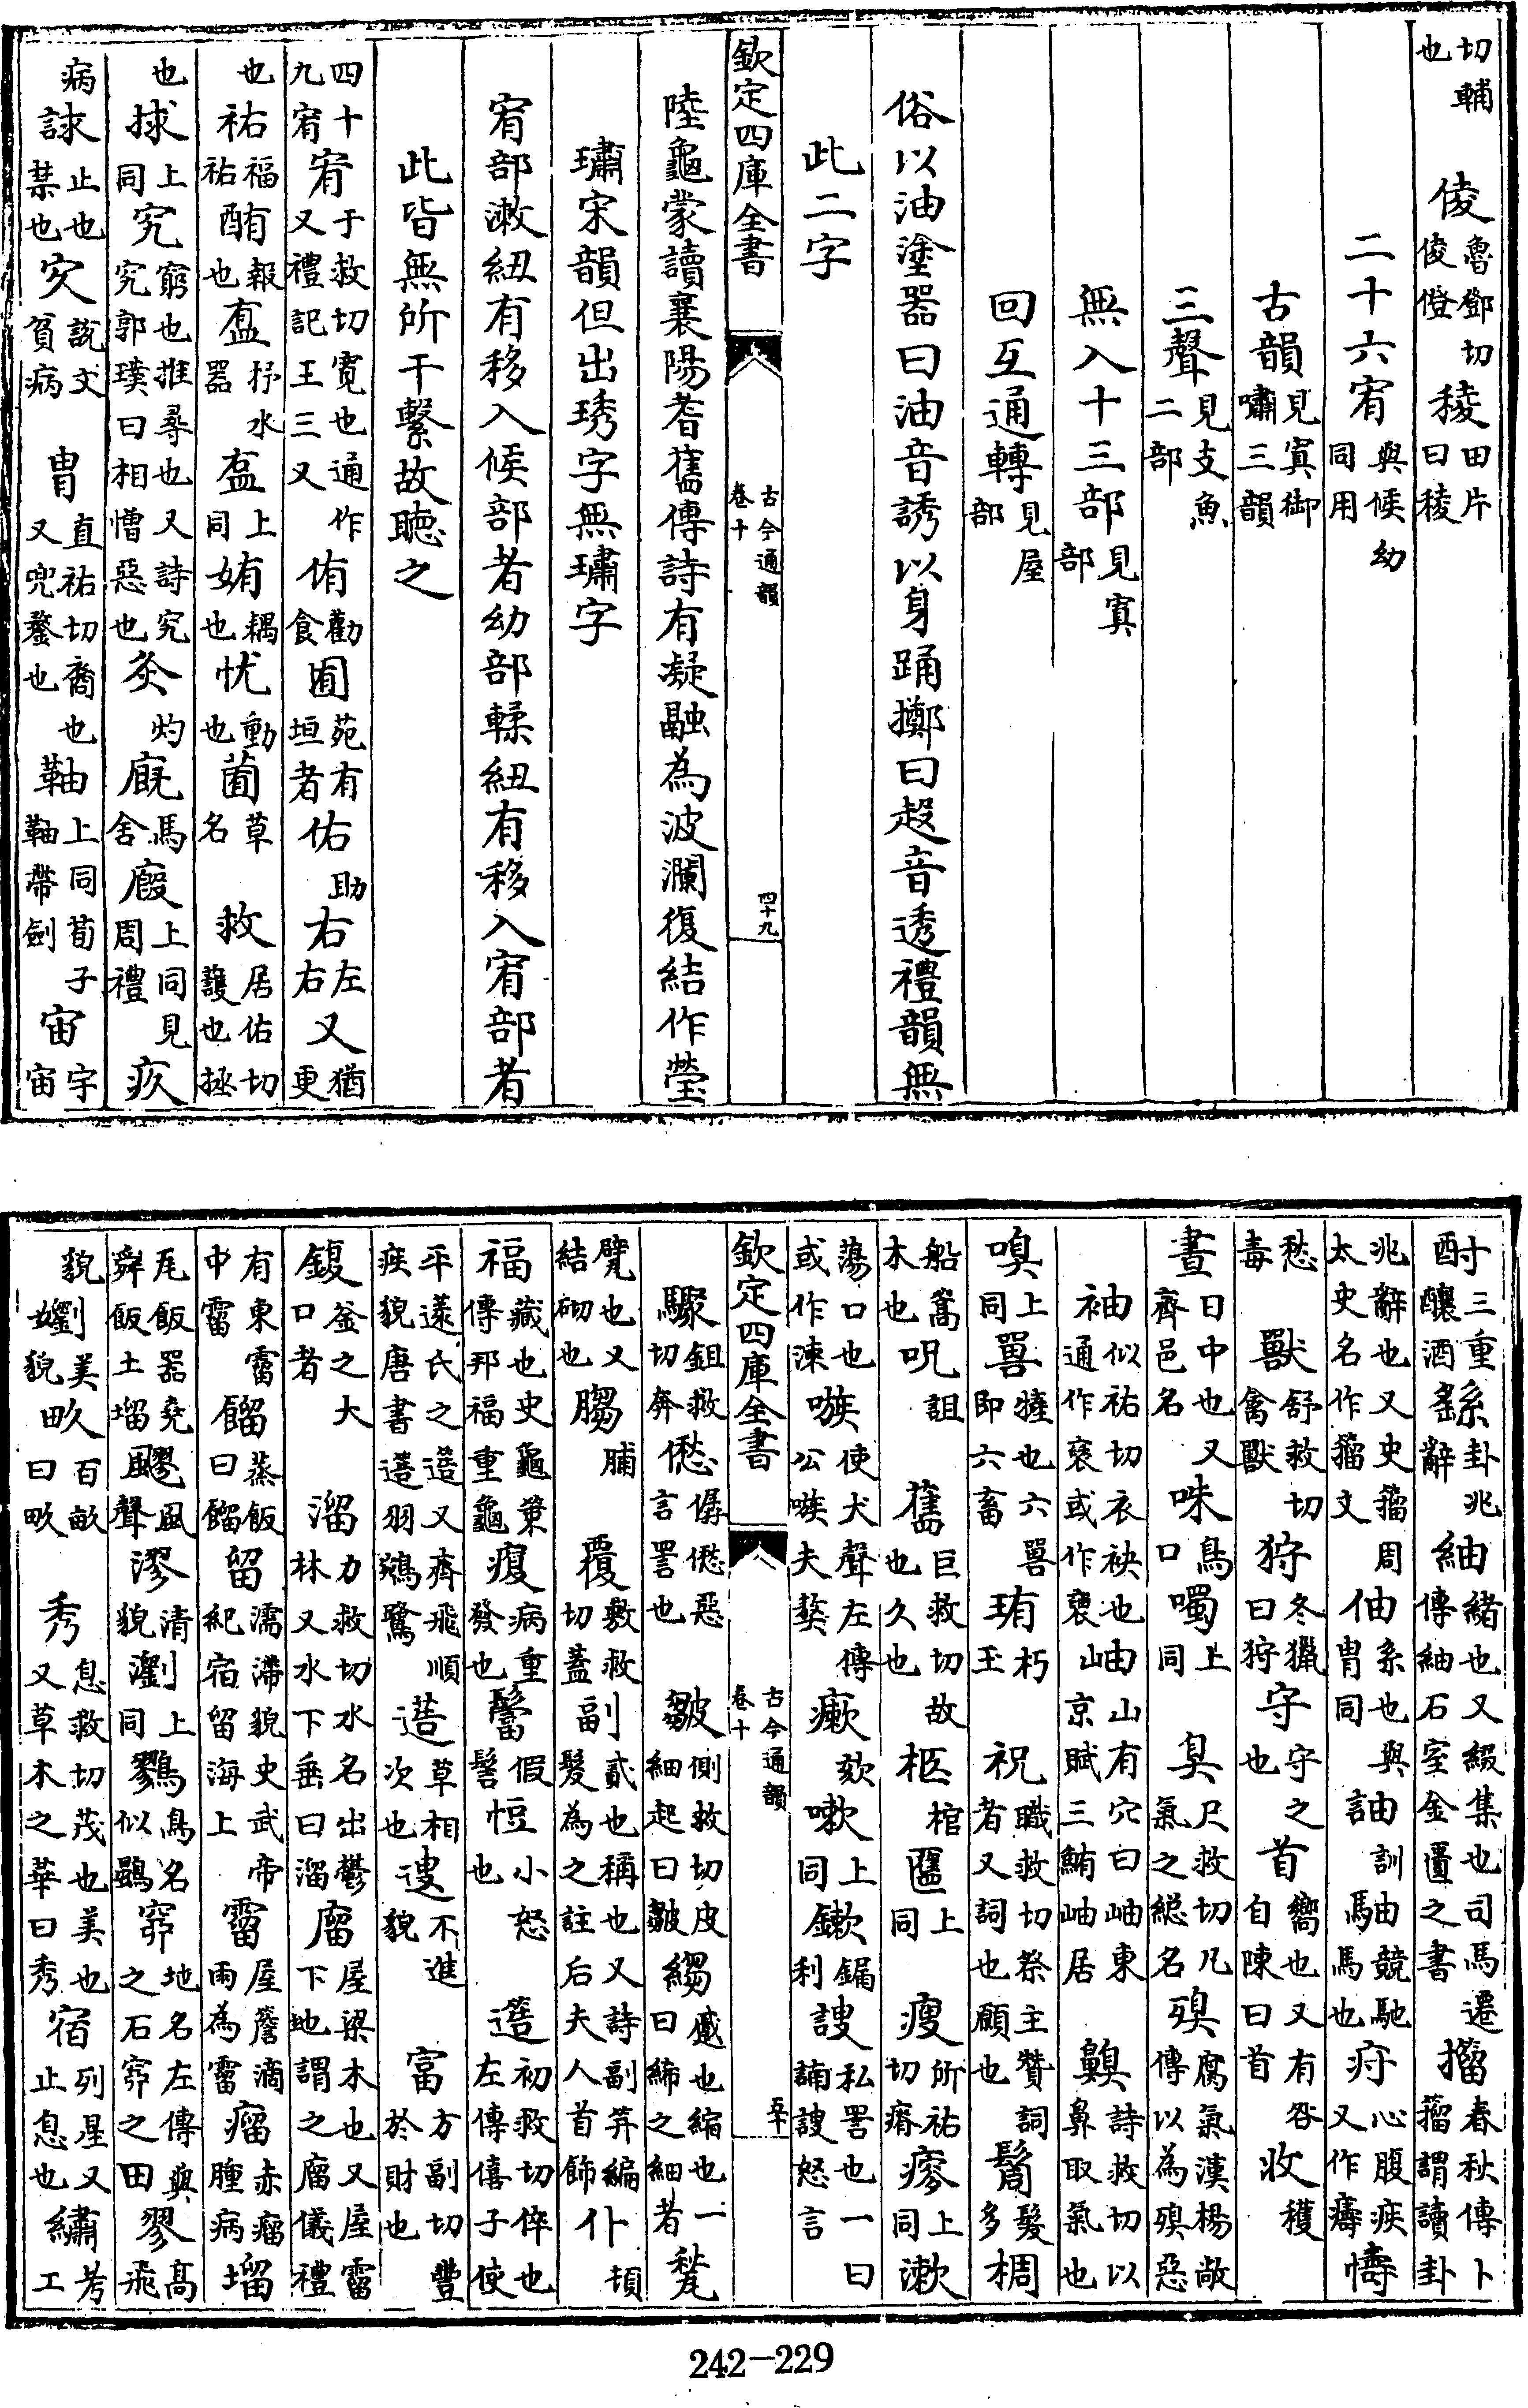 切輔也 倰魯鄧切倰僜 稜田片曰稜
二十六宥與候幼同用
古韻見寘御嘯三韻
三聲見支魚二部
無入十三部見寘部
回互通轉見屋部
俗以油塗器曰油音誘以身踊擲曰趐音透禮韻無
此二字
欽定四庫全書 古今通韻卷十 四十九
陸龜蒙讀襄陽耆舊傳詩有凝融為波瀾復結作瑩
璛宋韻但出琇字無璛字
宥部漱紐有移入候部者幼部輮紐有移入宥部者
此皆無所干繫故聽之
四十九宥 宥于救切寛也通作又禮記王三又 侑勸食 囿苑有垣者 佑助 右左右 又猶更
也 祐福祐 酭報也 㿭抒水器 盇上同 姷耦也 忧動也 莔草名 救居佑切護也拯
也 捄上同 究窮也推尋也又詩究究郭璞曰相憎惡也 灸灼 廐馬舍 廄上同見周禮 疚
病 䛮止也禁也 㝌説文貧病 胄直祐切裔也又兜鍪也 䩜上同荀子䩜帶劍 宙宇宙
酎三重釀酒 繇卦兆辭 紬緒也又綴集也司馬遷傳紬石室金匱之書 㩅春秋傳卜籀謂讀卦
兆辭也又史籀周太史名作籀文 伷系也與胄同 訷訓 駎競馳馬也 疛心腹疾又作㿒 懤
愁毒 獸舒救切禽獸 狩冬獵曰狩 守守之也 首嚮也又有咎自陳曰首 收穫
晝日中也又齊邑名 咮鳥口 噣上同 臭尺救切凡氣之緫名 殠腐氣漢楊敞傳以為殠惡
袖似祐切衣袂也通作褎或作褏 岫山有穴曰岫東京賦三鮪岫居 齅詩救切以鼻取氣也
嗅上同 嘼㹌也六嘼即六畜 珛朽玉 祝職救切祭主贊詞者又詞也願也 鬅髮多 椆
船篙木也 呪詛 舊巨救切故也久也 柩棺 匶上同 瘦所祐切瘠 瘮上同 漱
蕩口也或作涑 嗾使犬聲左傳公嗾夫獒 瘶欬 嗽上同 鏉鎘利 謏私詈也一曰諵謏怒言
欽定四庫全書 古今通韻卷十 五十
驟鉏救切奔 㥢僝㥢惡言詈也 皺側救切皮細起曰皺 縐蹙也縮也一曰絺之細者 甃
甓也又結砌也 䐢脯 覆敷救切蓋 副貳也稱也又詩副笄編髮為之註后夫人首飾 仆頓
福藏也史龜筴傳邦福重龜 瘦病重發也 䯱假髻 㤱小怒也 簉初救切倅也左傳僖子使
平薳氏之簉又齊飛順疾貌唐書簉羽鵷鷺 蓗草相次也 逗不進貌 富方副切豐於財也
鍑釜之大口者 溜力救切水名出鬱林又水下垂曰溜 廇屋梁木也又屋霤下地謂之廇儀禮
有東霤中霤 餾蒸飯曰餾 留濡滯貌史武帝紀宿留海上 霤屋簷滴雨為霤 瘤赤瘤腫病 塯
瓦飯器堯舜飯土塯 飂風聲 漻清貌 瀏上同 鷚鳥名似鷃 窌地名左傳與之石窌之田 翏高飛
貌 嬼美貌 畂百畝曰畂 秀息救切茂也美也又草木之華曰秀 宿列星又止息也 繡考工
242—229